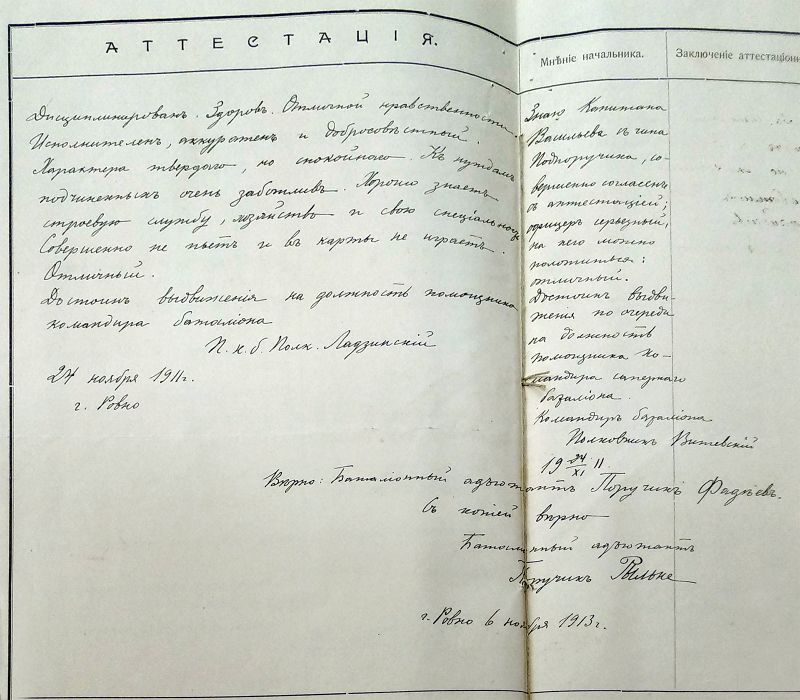 АТТЕСТАЦІЯ.
Мнѣніе начальника.
Заключеніе аттестаціонн
Дисциплинированъ. Здоровъ. Отличной нравственности.
Исполнителенъ, аккуратенъ и добросовѣстный.
Характера твердаго, но спокойнаго. Къ нуждамъ
подчиненныхъ очень заботливъ. Хорошо знаетъ
строевую службу, хозяйство и свою специальность
Совершенно не пьетъ и въ карты не играетъ.
Отличный.
Достоинъ выдвиженія на должность помощника
командира баталіона
П. к. б. Полк. Ладзинскій
24 ноября 1911г.
г. Ровно
Знаю Капитана
Васильева съ чина
Подпоручика, со-
вершенно согласенъ
съ аттестаціей;
офицеръ серьезный,
на него можно
положиться:
отличный.
Достоинъ выдви-
женія по очереди
на должность
помощника ко-
мандира сапернаго
баталіона.
Командиръ баталіона
Полковникъ
19 24/XI 11
Вѣрно: Баталіонный адъютантъ Поручикъ Фадѣевъ.
Съ копіей вѣрно
Баталіонный адъютантъ
Поручикъ
г. Ровно 6 ноября 1913г.